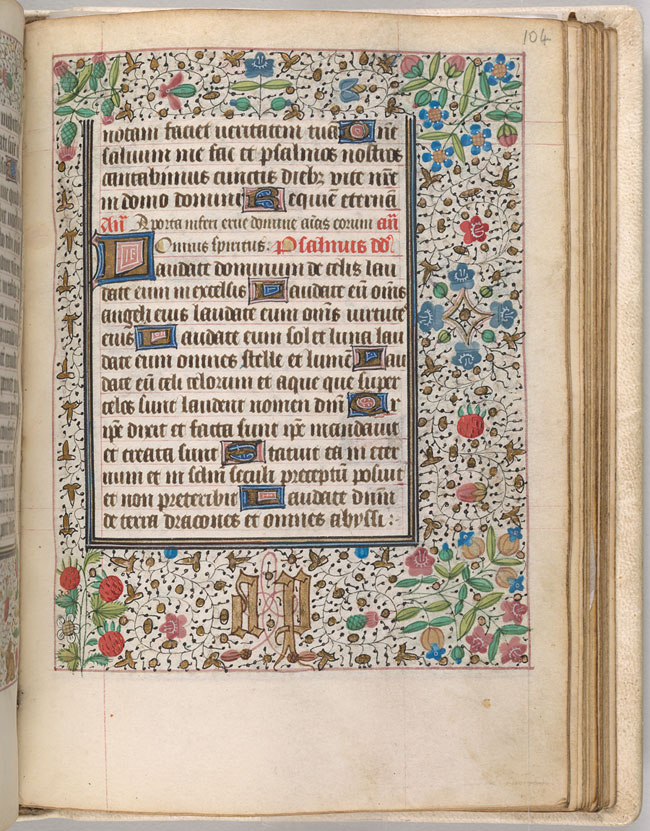 104
notam faciet veritatem tua Dñe
salvum me fac et psalmos nostros
cantabimus cunctis diebz vite nr̃e
in domo domini Requiē eternā
Añ A porta inferi erue domine aĩas eorum añ
Omnis spiritus. Psalmus dd̃
Laudate dominum de celis lau
date eum in excelsis Laudate eū om̃s
angeli eius laudate eum om̃s virtute
eius Laudate eum sol et luna lau
date eum omnes stelle et lumē Lau
date eū celi celorum et aque que super
celos sunt laudent nomen dnĩ Qr
ip̃e dixit et facta sunt ip̃e mandavit
et creata sunt Statuit ea in eter
num et in sclm̃ seculi preceptū posuit
et non preteribit Laudate dnm̃
de terra dracones et omnes abyssi :